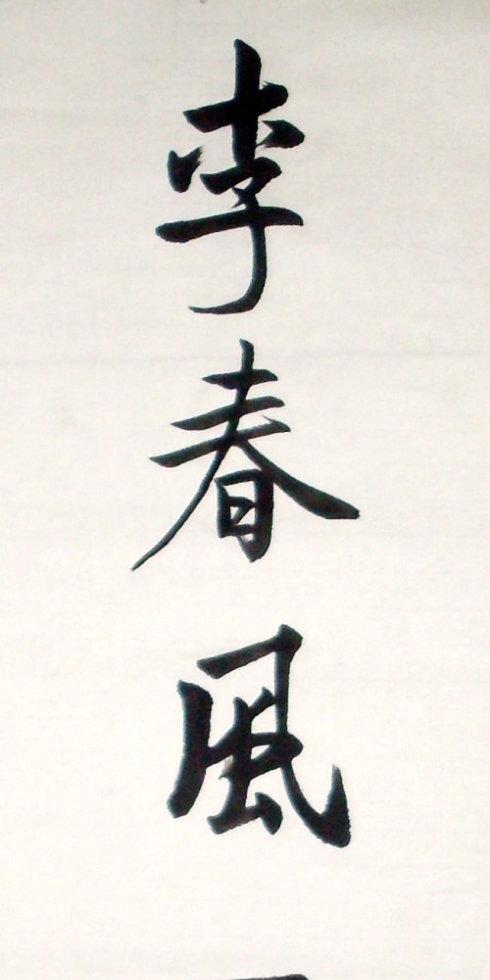 李春風